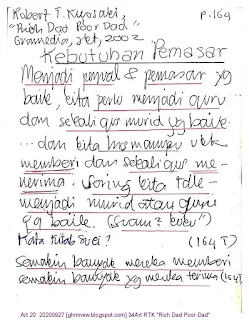 Robert T. Kiyosaki,
"Rich Dad Poor Dad"
P.164
Gramedia, 2002
Kebutuhan Pemasar
Menjadi penjual & pemasar yg
baik, kita perlu menjadi guru
dan sekaligus murid yg baik.
...dan kita hrs mampu utk
memberi dan sekaligus me-
nerima. Sering kita tdk
menjadi murid atau guru
yg baik.
Kata Kitab Suci? (164 T)
Semakin banyak mereka memberi
semakin banyak yg mereka terima (164 T)
Art 20 20200927 [ghmnew.blogspot.com] 34Art RTK "Rich Dad Poor Dad"